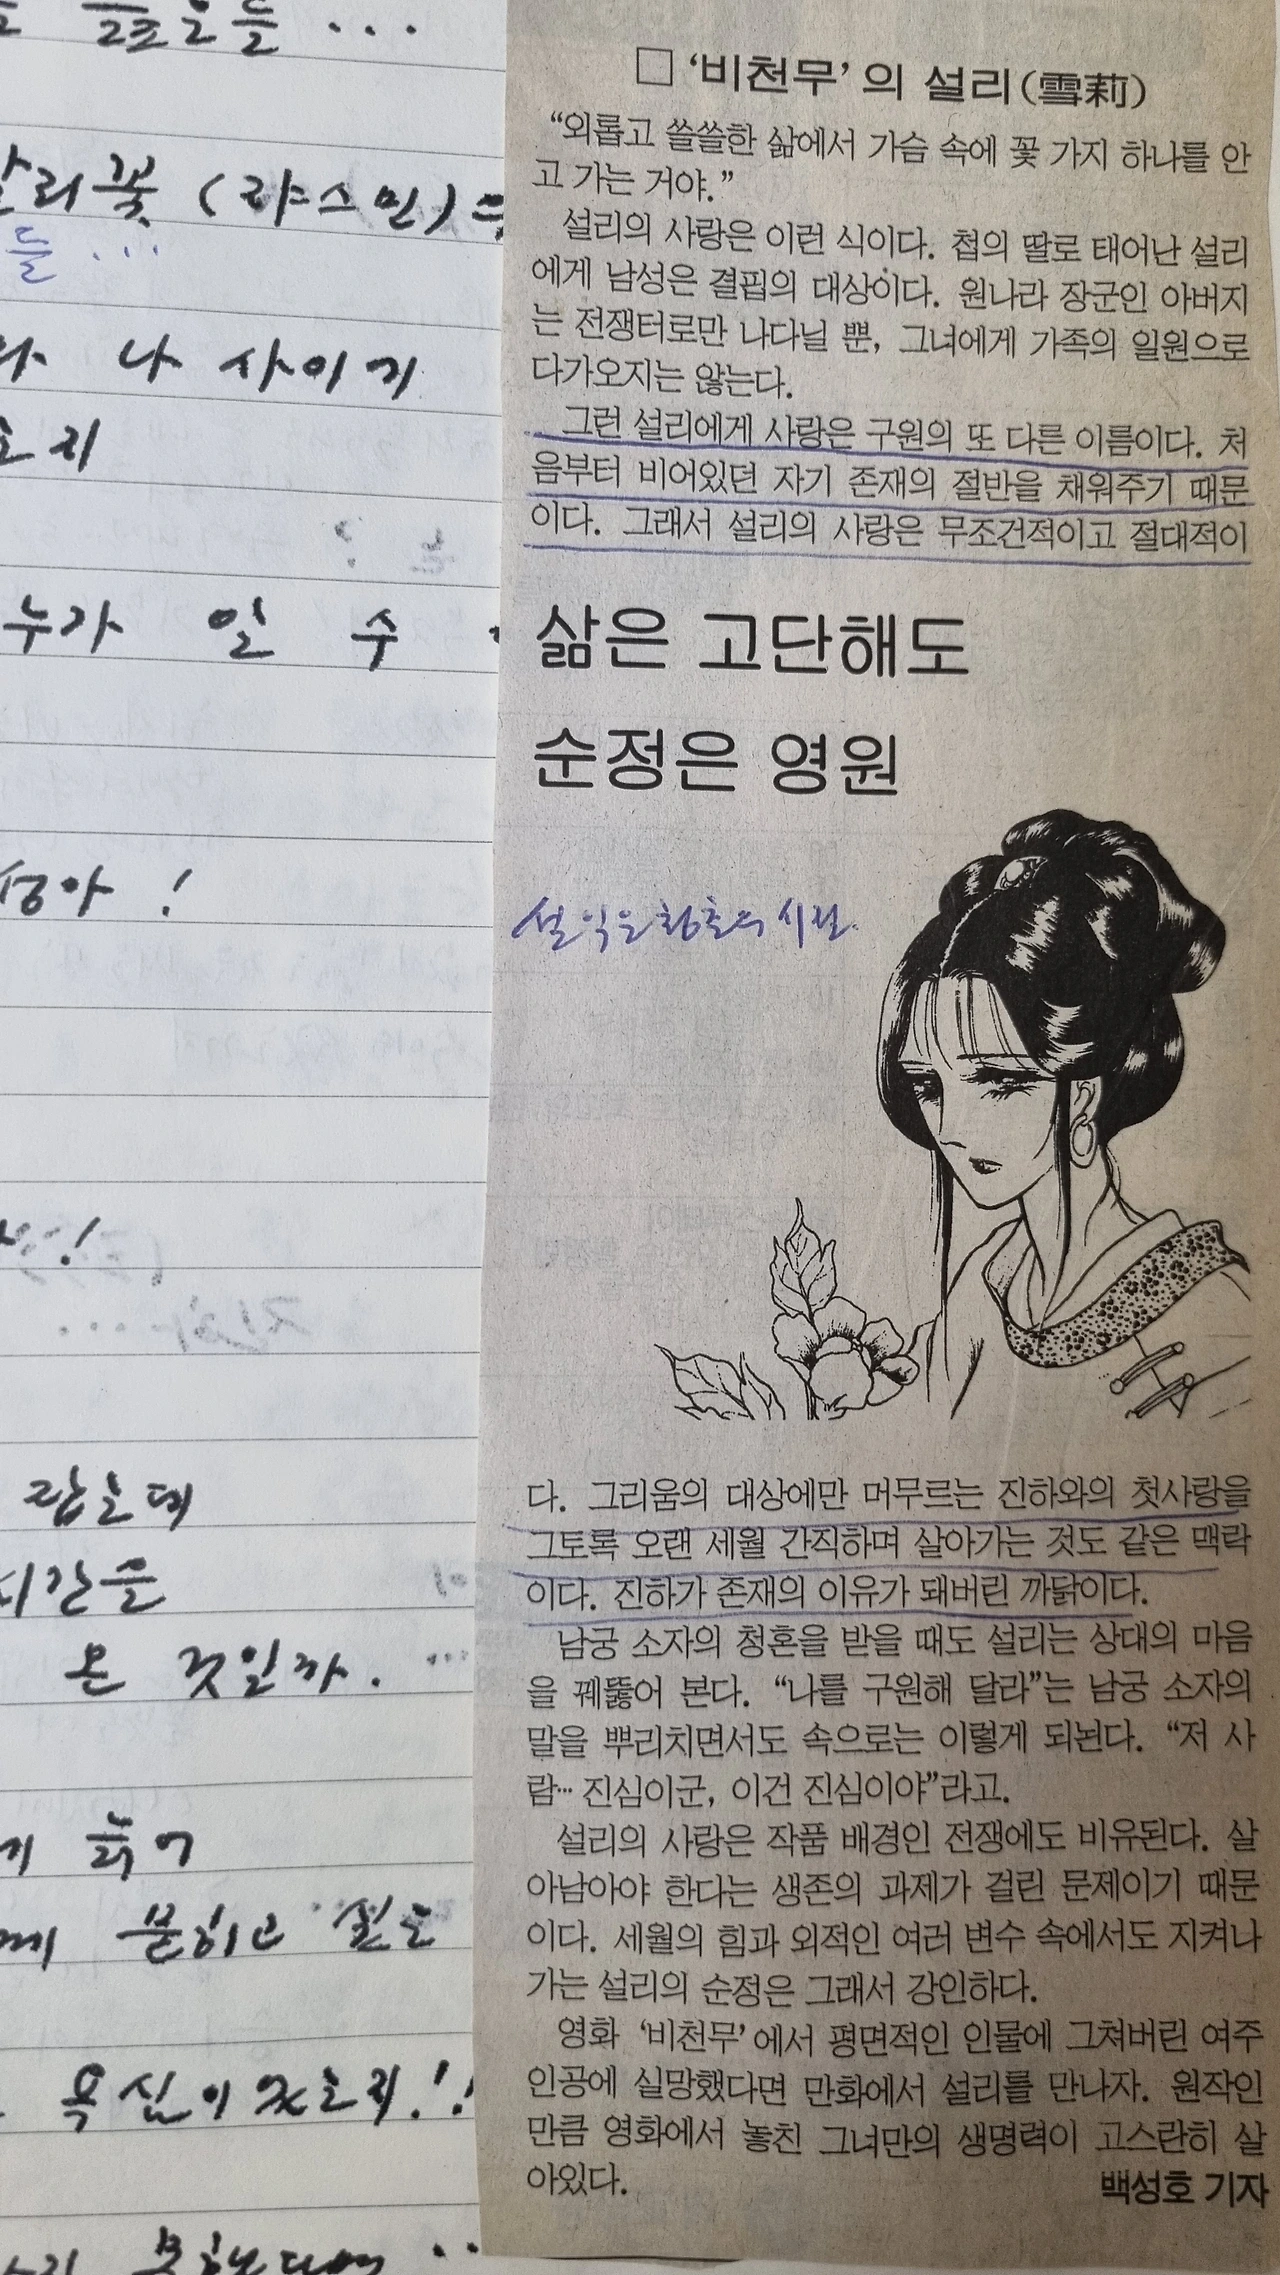 들 . . .
꽃 (쟈스민)
들 . . .
나 사이기
누가 일 수
!
!
시간을
온 것일까. . . .
묻히고 싶은
욕심이었으리 ! !
□ ‘비천무’의 설리(雪莉)
“외롭고 쓸쓸한 삶에서 가슴 속에 꽃 가지 하나를 안
고 가는 거야.”
설리의 사랑은 이런 식이다. 첩의 딸로 태어난 설리
에게 남성은 결핍의 대상이다. 원나라 장군인 아버지
는 전쟁터로만 나다닐 뿐, 그녀에게 가족의 일원으로
다가오지는 않는다.
그런 설리에게 사랑은 구원의 또 다른 이름이다. 처
음부터 비어있던 자기 존재의 절반을 채워주기 때문
이다. 그래서 설리의 사랑은 무조건적이고 절대적이
삶은 고단해도
순정은 영원
설익은 청춘의 시절.
다. 그리움의 대상에만 머무르는 진하와의 첫사랑을
그토록 오랜 세월 간직하며 살아가는 것도 같은 맥락
이다. 진하가 존재의 이유가 돼버린 까닭이다.
남궁 소자의 청혼을 받을 때도 설리는 상대의 마음
을 꿰뚫어 본다. “나를 구원해 달라”는 남궁 소자의
말을 뿌리치면서도 속으로는 이렇게 되뇐다. “저 사
람… 진심이군, 이건 진심이야”라고.
설리의 사랑은 작품 배경인 전쟁에도 비유된다. 살
아남아야 한다는 생존의 과제가 걸린 문제이기 때문
이다. 세월의 힘과 외적인 여러 변수 속에서도 지켜나
가는 설리의 순정은 그래서 강인하다.
영화 ‘비천무’에서 평면적인 인물에 그쳐버린 여주
인공에 실망했다면 만화에서 설리를 만나자. 원작인
만큼 영화에서 놓친 그녀만의 생명력이 고스란히 살
아있다.
백성호 기자